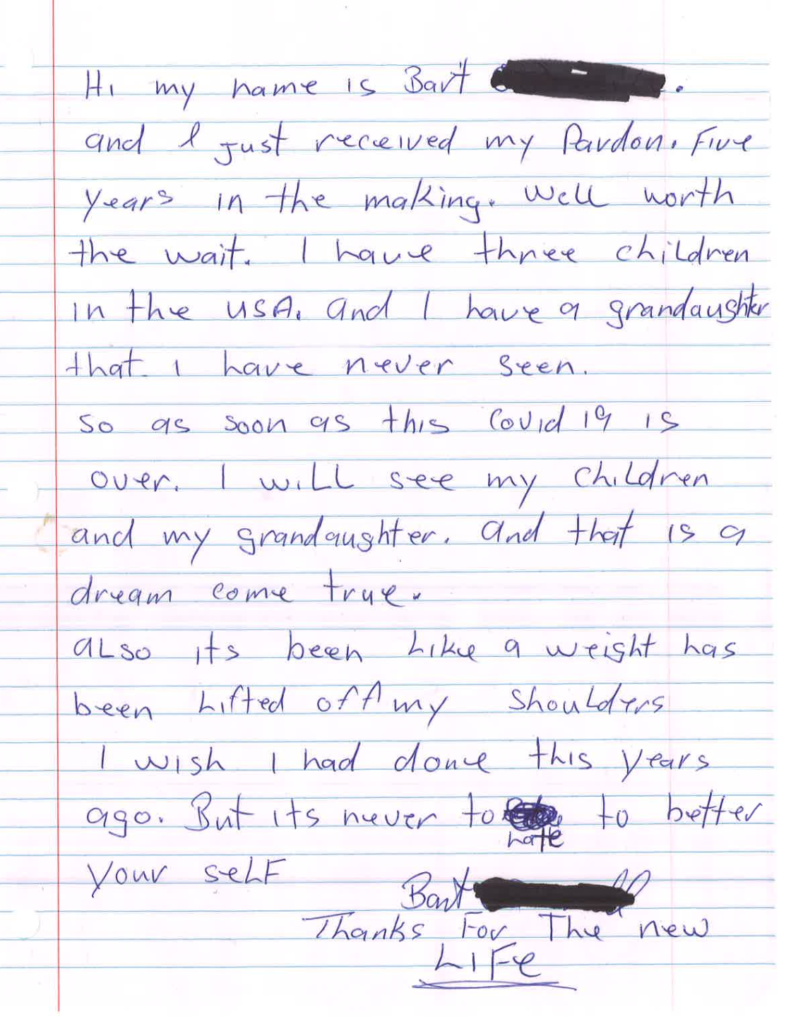 Hi my name is Bart .
and I just received my Pardon. Five
years in the making. Well worth
the wait. I have three children
in the USA. And I have a grandaughter
that I have never seen.
So as soon as this Covid 19 is
over. I will see my children
and my grandaughter. And that is a
dream come true.
Also its been like a weight has
been lifted off my shoulders
I wish I had done this years
ago. But its never to late to better
your self
Bart
Thanks For The new
LIFE